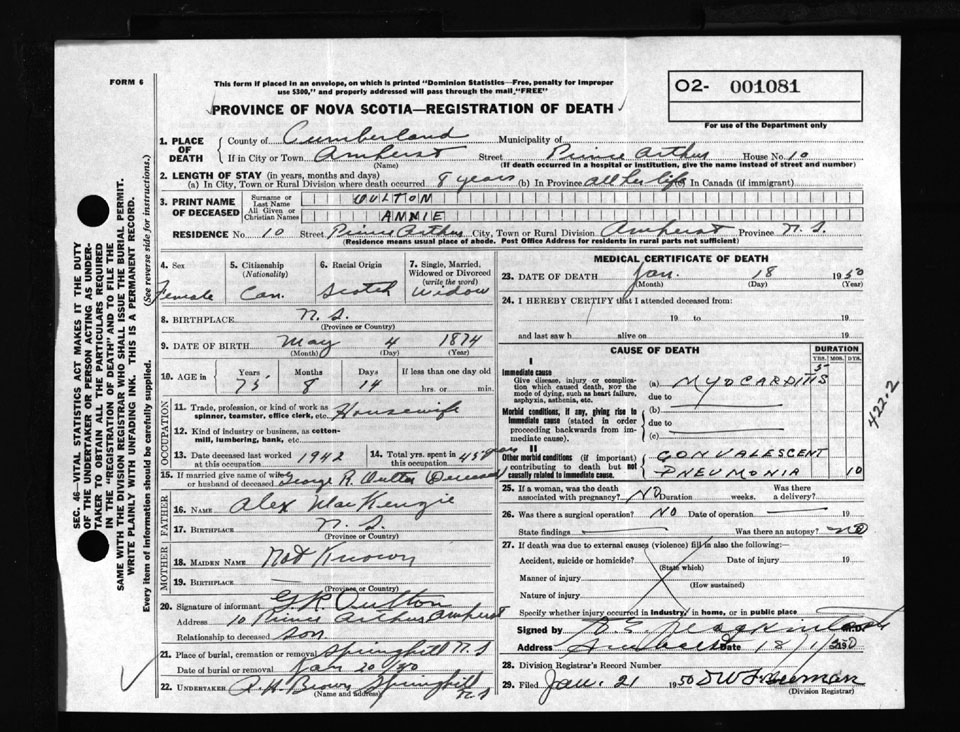 FORM 6
This form if placed in an envelope, on which is printed "Dominion Statistics—Free, penalty for improper
use $300," and properly addressed will pass through the mail "FREE"
PROVINCE OF NOVA SCOTIA—REGISTRATION OF DEATH
O2- 001081
For use of the Department only
1. PLACE OF DEATH
County of Cumberland Municipality of
If in City or Town Amherst Street Prince Arthur House No. 10
(Name) (If death occurred in a hospital or institution, give the name instead of street and number)
2. LENGTH OF STAY (in years, months and days)
(a) In City, Town or Rural Division where death occurred 8 years (b) In Province all her life (c) In Canada (if immigrant)
3. PRINT NAME OF DECEASED
Surname or Last Name OULTON
All Given or Christian Names ANNIE
RESIDENCE No. 10 Street Prince Arthur City, Town or Rural Division Amherst Province N. S.
(Residence means usual place of abode. Post Office Address for residents in rural parts not sufficient)
4. Sex Female
5. Citizenship (Nationality) Can.
6. Racial Origin Scotch
7. Single, Married, Widowed or Divorced (write the word) Widow
8. BIRTHPLACE N. S.
(Province or Country)
9. DATE OF BIRTH May 4 1874
(Month) (Day) (Year)
10. AGE in Years 75 Months 8 Days 14 If less than one day old
hrs. or min.
OCCUPATION
11. Trade, profession or kind of work as spinner, teamster, office clerk, etc. Housewife
12. Kind of industry or business, as cotton-mill, lumbering, bank, etc.
13. Date deceased last worked at this occupation 1942 14. Total yrs. spent in this occupation 45 years
15. If married give name of wife or husband of deceased George R. Oulton Deceased
FATHER
16. Name Alex MacKenzie
17. BIRTHPLACE N. S.
(Province or Country)
MOTHER
18. MAIDEN NAME Not Known
19. BIRTHPLACE
(Province or Country)
20. Signature of informant G. R. Oulton
Address 10 Prince Arthur Amherst
Relationship to deceased Son
21. Place of burial, cremation or removal Springhill N S
Date of burial or removal Jan 20/50
22. UNDERTAKER R. H. Brown Springhill N S
(Name and address)
MEDICAL CERTIFICATE OF DEATH
23. DATE OF DEATH Jan. 18 1950
(Month) (Day) (Year)
24. I HEREBY CERTIFY that I attended deceased from:
19 to 19
and last saw h alive on 19
CAUSE OF DEATH DURATION
YRS. MOS. DYS.
I
Immediate cause
Give disease, injury or complication which caused death, NOT the mode of dying, such as heart failure, asphyxia, asthenia, etc.
(a) MYOCARDITIS 5
due to
Morbid conditions, if any, giving rise to immediate cause (stated in order proceeding backwards from immediate cause).
(b)
due to
(c)
II
Other morbid conditions (if important) contributing to death but not causally related to immediate cause.
CONVALESCENT
PNEUMONIA 10
422.2
25. If a woman, was the death associated with pregnancy? NO Duration weeks. Was there a delivery?
26. Was there a surgical operation? NO Date of operation 19
State findings Was there an autopsy? NO
27. If death was due to external causes (violence) fill in also the following:
Accident, suicide or homicide? Date of injury 19
(State which)
Manner of injury
(How sustained)
Nature of injury
Specify whether injury occurred in industry, in home, or in public place
Signed by M.D.
Address Amherst Date 18/1/1950
28. Division Registrar's Record Number
29. Filed Jan. 21 1950
(Division Registrar)
SEC. 46—VITAL STATISTICS ACT MAKES IT THE DUTY
OF THE UNDERTAKER OR PERSON ACTING AS UNDER-
TAKER TO OBTAIN ALL THE PARTICULARS REQUIRED
IN THE "REGISTRATION OF DEATH" AND TO FILE THE
SAME WITH THE DIVISION REGISTRAR WHO SHALL ISSUE THE BURIAL PERMIT.
WRITE PLAINLY WITH UNFADING INK. THIS IS A PERMANENT RECORD.
Every item of information should be carefully supplied. (See reverse side for instructions.)